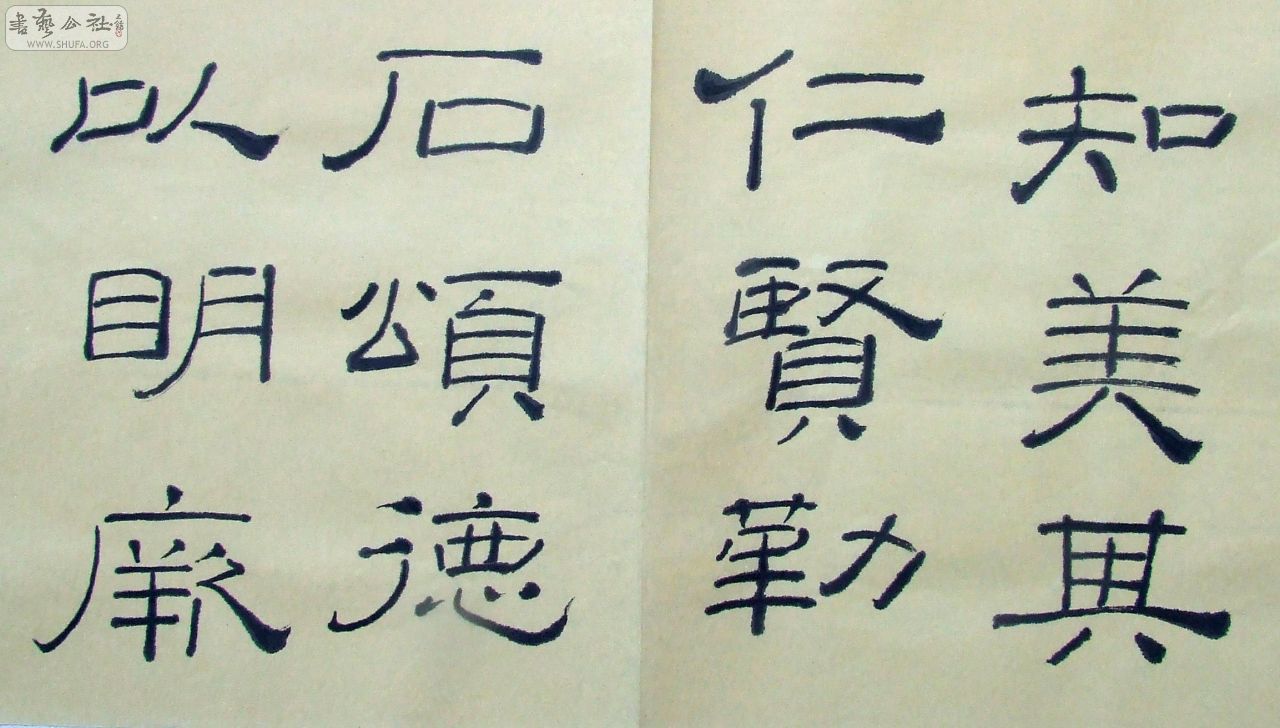 知美其
仁賢勒
石頌德
以明厥
書藝公社
WWW.SHUFA.ORG